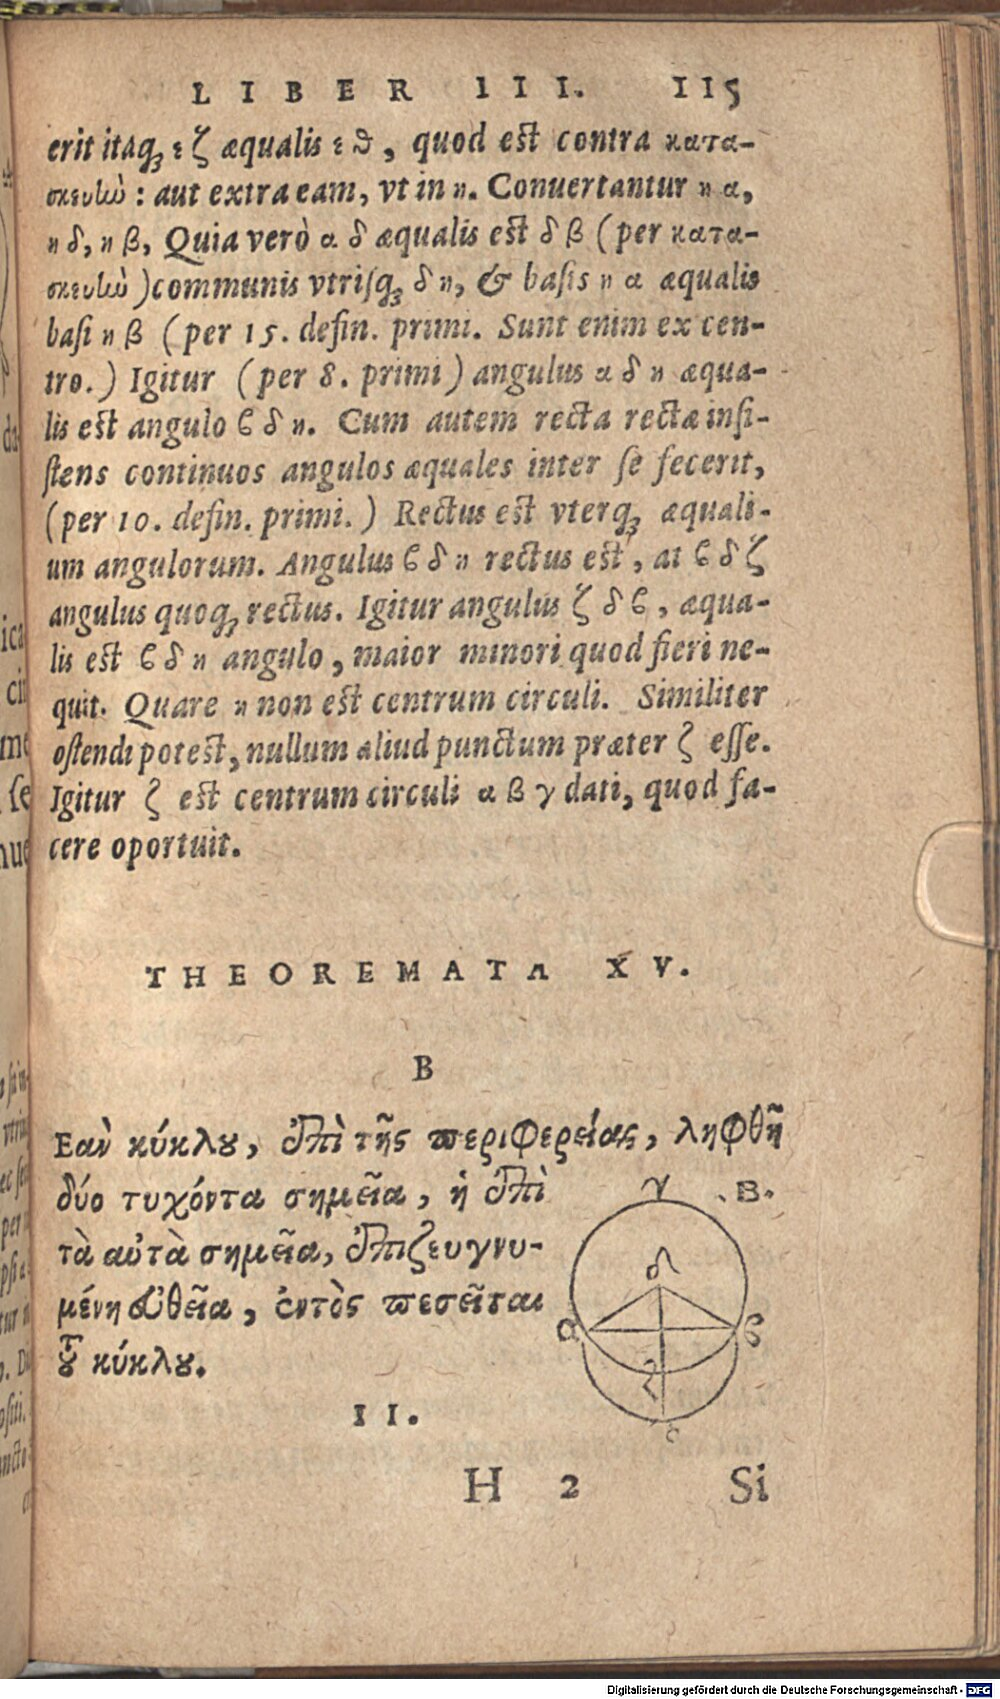 LIBER III. 115
erit itaq; ε ζ æqualis ε ϑ, quod est contra κατα-
σκευὼ: aut extra eam, vt in η. Conuertantur η α,
η δ, η β, Quia verò α δ æqualis est δ β (per κατα-
σκευὼ) communis vtrisq; δ η, & basis η α æqualis
basi η β (per 15. defin. primi. Sunt enim ex cen-
tro.) Igitur (per 8. primi) angulus α δ η æqua-
lis est angulo ϐ δ η. Cum autem recta rectæ insi-
stens continuos angulos æquales inter se fecerit,
(per 10. defin. primi.) Rectus est vterq; æquali-
um angulorum. Angulus ϐ δ η rectus est, at ϐ δ ζ
angulus quoq; rectus. Igitur angulus ζ δ ϐ, æqua-
lis est ϐ δ η angulo, maior minori quod fieri ne-
quit. Quare η non est centrum circuli. Similiter
ostendi potest, nullum aliud punctum præter ζ esse.
Igitur ζ est centrum circuli α β γ dati, quod fa-
cere oportuit.
THEOREMATA XV.
B
Εαν̀ κύκλȣ, ἐπὶ τῆς περιφερείας, ληφθῆ
δύο τυχόντα σημεῖα, ἡ ἐπὶ
τὰ αὐτὰ σημεῖα, ἐπιζευγνυ-
μένη εὐθεῖα, ἐντὸς πεσεῖται
τȣ͂ κύκλȣ.
γ B.
δ
α ϐ
ζ
ε
II.
H 2 Si
Digitalisierung gefördert durch die Deutsche Forschungsgemeinschaft - DFG